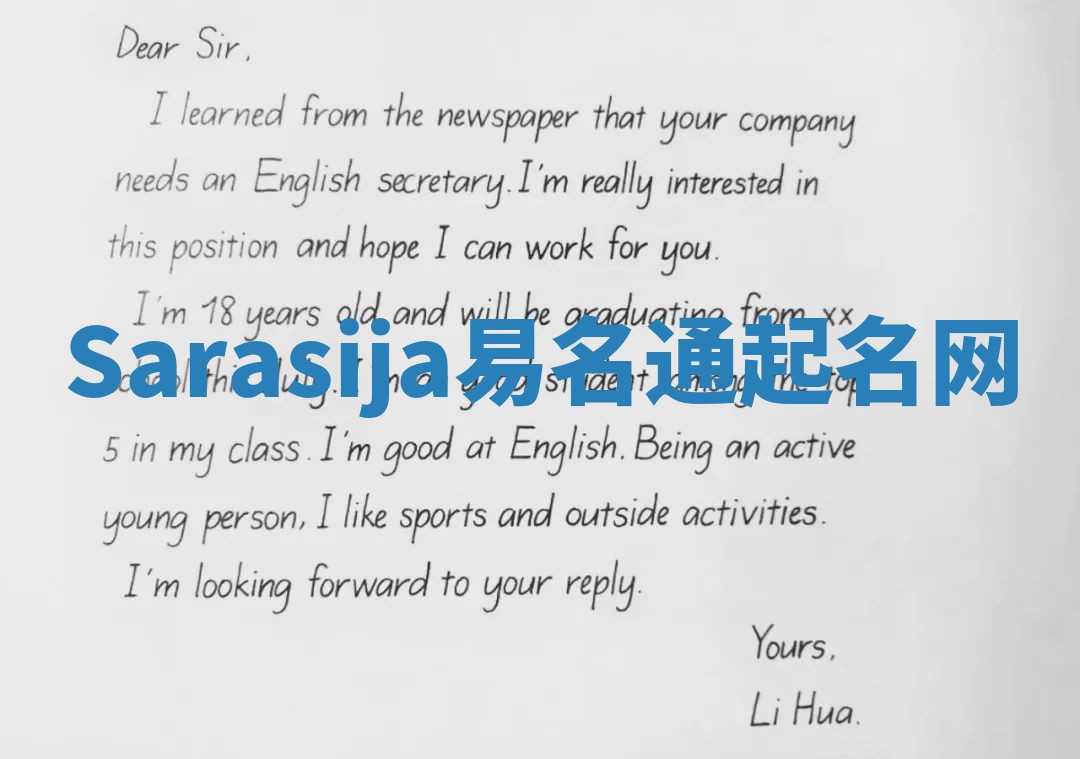 Dear Sir,
I learned from the newspaper that your company
needs an English secretary. I'm really interested in
this position and hope I can work for you.
I'm 18 years old and will be graduating from xx
Sarasija易名通起名网
student among the top
5 in my class. I'm good at English. Being an active
young person, I like sports and outside activities.
I'm looking forward to your reply.
Yours,
Li Hua.